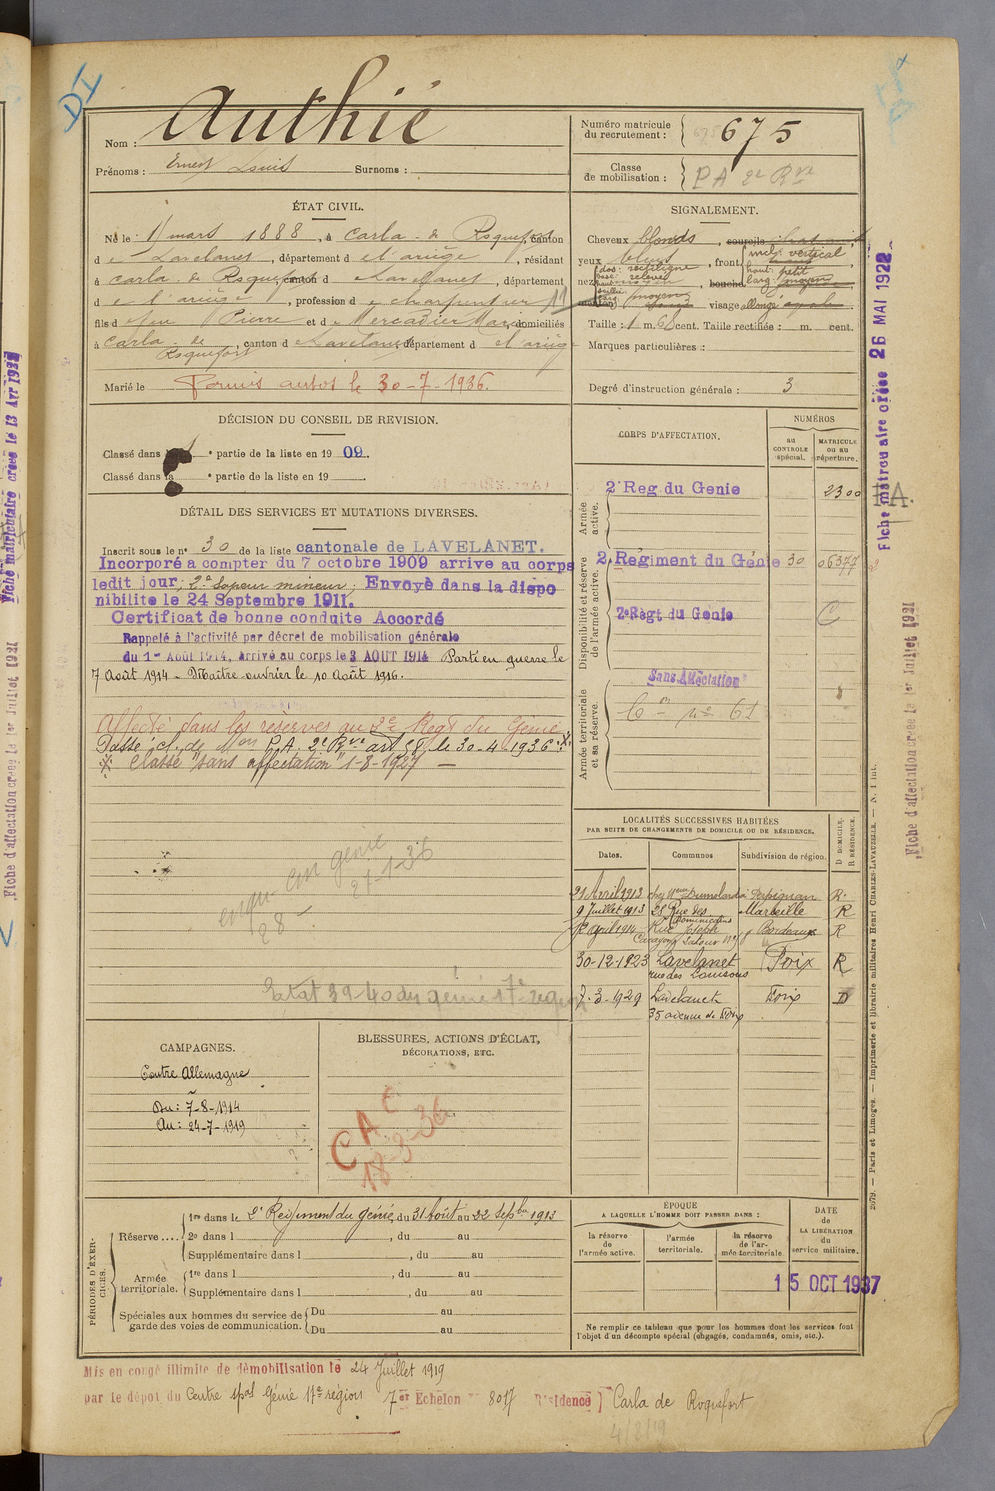 DI
Nom : Authié
Prénoms : Ernest Louis Surnoms :
Numéro matricule du recrutement : 675
Classe de mobilisation : PA 2e Rve
ÉTAT CIVIL.
Né le 11 mars 1888, à Carla-de Roquefort, canton
de Lavelanet, département de l'ariège, résidant
à Carla de Roquefort, canton de Lavelanet, département
de l'ariège, profession de charpentier
fils de feu Pierre et de Mercadier Marie, domiciliés
à Carla de Roquefort, canton de Lavelanet, département de l'ariège
Marié le
Permis autos le 30-7-1936.
SIGNALEMENT.
Cheveux blonds, sourcils
yeux bleus, front incl: vertical
haut: petit
larg: moyen
nez dos: rectiligne
base: relevée
bouche
visage allongé
Taille : 1 m. cent. Taille rectifiée : m. cent.
Marques particulières :
Degré d'instruction générale : 3
DÉCISION DU CONSEIL DE REVISION.
Classé dans la partie de la liste en 1909.
Classé dans la partie de la liste en 19
DÉTAIL DES SERVICES ET MUTATIONS DIVERSES.
Inscrit sous le n° 30 de la liste cantonale de LAVELANET.
Incorporé a compter du 7 octobre 1909 arrive au corps
ledit jour; 2e Sapeur mineur; Envoyé dans la dispo
nibilite le 24 Septembre 1911.
Certificat de bonne conduite Accordé
Rappelé à l'activité par décret de mobilisation générale
du 1er Août 1914, arrivé au corps le 3 AOUT 1914 Parti en guerre le
7 Août 1914 - Maître ouvrier le 10 Août 1916.
Affecté dans les réserves au 2e Regt du Génie
Passé cl. de Mon P.A. 2e Rve art 58 le 30-4-1936
Classé "sans affectation" 1-8-1927
génie
27-1-36
Etat 39-40 du génie 17e région
CORPS D'AFFECTATION.
NUMÉROS
au CONTROLE spécial.
MATRICULE ou au répertoire.
Armée active.
2e Reg du Genie 2300
Disponibilité et réserve de l'armée active.
2e Régiment du Génie 30 06377
2e Régt du Génie C
Armée territoriale et sa réserve.
Sans Affectation
Cie n° 61
LOCALITÉS SUCCESSIVES HABITÉES
PAR SUITE DE CHANGEMENTS DE DOMICILE OU DE RÉSIDENCE.
Dates. Communes Subdivision de région. D DOMICILE. R RÉSIDENCE.
21 Avril 1913 chez Perpignan R.
9 Juillet 1913 28 Rue des Dominicains Marseille R
Avril 1914 Rue Joseph Bordeaux R
30-12-1923 Lavelanet Foix R
7-3-1929 Lavelanet Foix D
35 avenue de Foix
CAMPAGNES.
Contre Allemagne
Du : 7-8-1914
Au : 24-7-1919
BLESSURES, ACTIONS D'ÉCLAT, DÉCORATIONS, ETC.
C A C
18-3-36
PÉRIODES D'EXERCICES.
Réserve .... 1re dans le 2e Régiment du Génie, du 31 Août au 22 Septbre 1913
2e dans l , du au
Supplémentaire dans l , du au
Armée territoriale. 1re dans l , du au
Supplémentaire dans l , du au
Spéciales aux hommes du service de garde des voies de communication. Du au
Du au
ÉPOQUE
A LAQUELLE L'HOMME DOIT PASSER DANS :
la réserve de l'armée active.
l'armée territoriale.
la réserve de l'armée territoriale
DATE de LA LIBÉRATION du service militaire.
15 OCT 1937
Ne remplir ce tableau que pour les hommes dont les services font
l'objet d'un décompte spécial (engagés, condamnés, omis, etc.).
Mis en congé illimité de démobilisation le 24 Juillet 1919
par le dépôt du Centre spal Génie 17e région 7er Echelon Résidence Carla de Roquefort
4/8/19
Fiche matriculaire créée 26 MAI 1922
Fiche d'affectation créée le 1er Juillet 1921
2679. — Paris et Limoges. — Imprimerie et librairie militaires Henri CHARLES-LAVAUZELLE. — N. 1 int.
Fiche matriculaire créée le 13 Avr 1922
Fiche d'affectation créée le 1er Juillet 1921